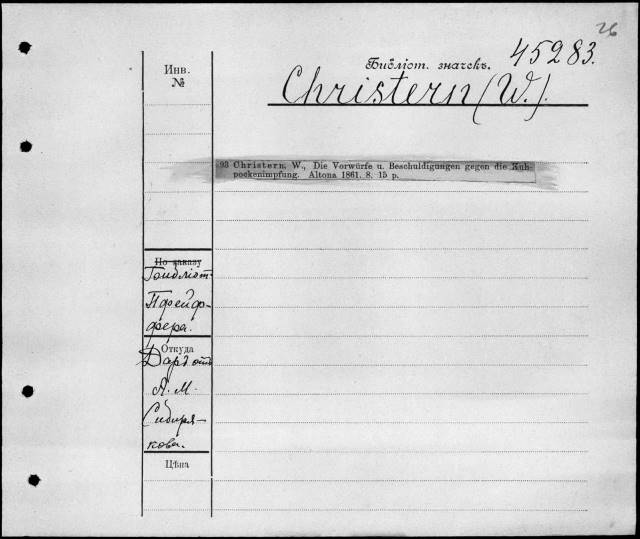 26
Инв.
№
Библіот. значекъ. 45283.
Christern (W.).
93 Christern, W., Die Vorwürfe u. Beschuldigungen gegen die Kuh-
pockenimpfung. Altona 1861. 8. 15 p.
По заказу
Библіот.
Пфейф-
фера.
Откуда
Даръ отъ
А. М.
Сибиря-
кова.
Цѣна